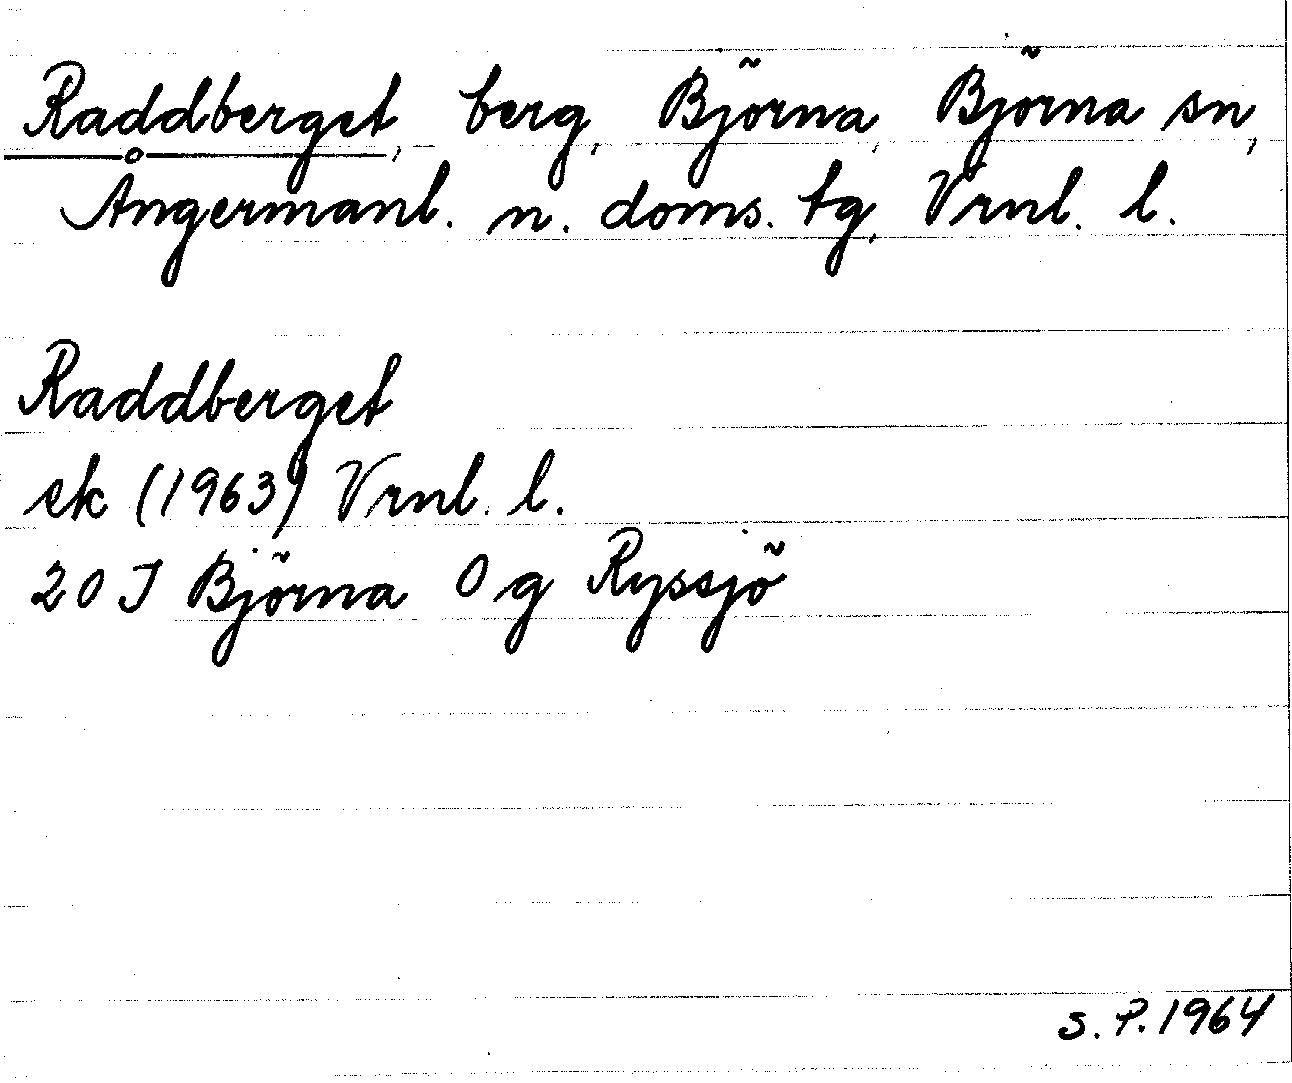 Raddberget, berg, Björna, Björna sn,
Ångermanl. n. doms. tg, Vrnl. l.
Raddberget
ek (1963) Vrnl. l.
20 J Björna O g Ryssjö
S. P. 1964